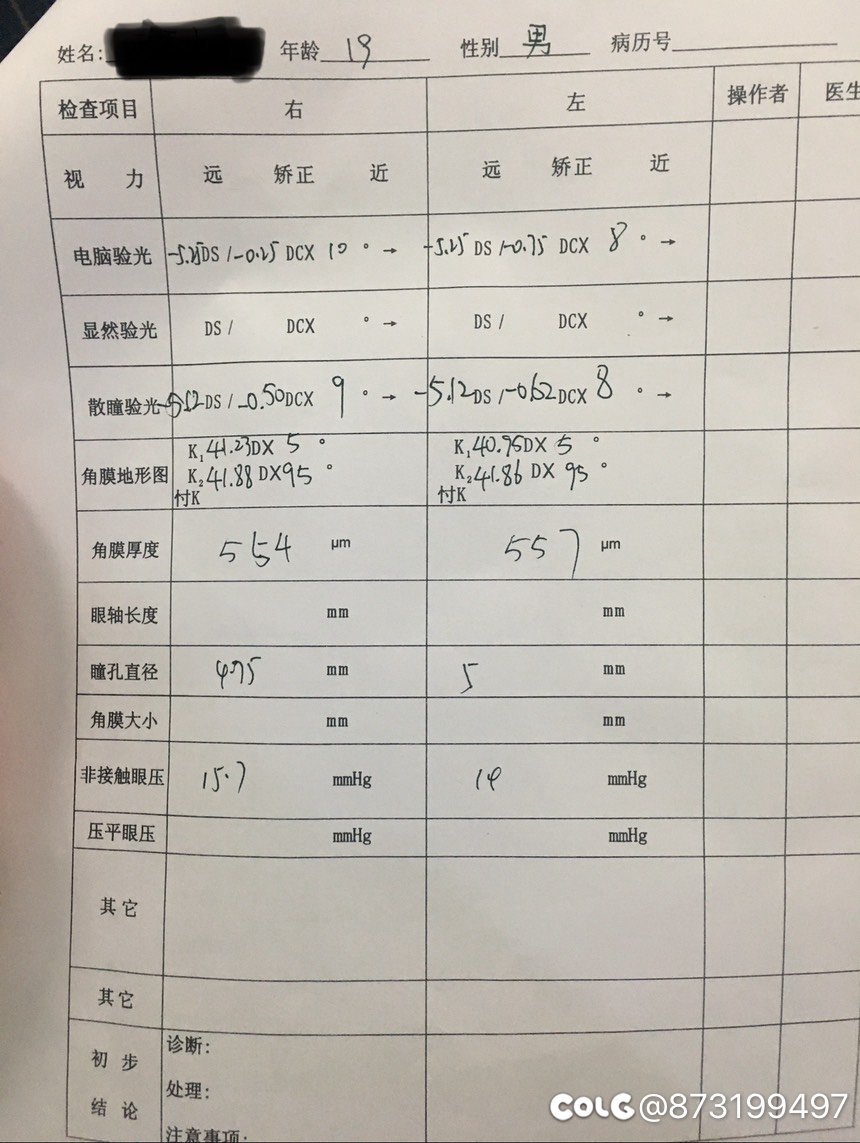 姓名: 年龄 19 性别 男 病历号
检查项目 右 左 操作者 医生
视 力 远 矫正 近 远 矫正 近
电脑验光 -5.25DS / -0.25 DCX 10 ° → -5.25 DS / -0.75 DCX 8 ° →
显然验光 DS / DCX ° → DS / DCX ° →
散瞳验光 -5.12DS / -0.50DCX 9 ° → -5.12DS / -0.62DCX 8 ° →
K₁41.23DX 5 ° K₁40.75DX 5 °
角膜地形图 K₂41.88 DX95 ° K₂41.86 DX 95 °
付K 付K
角膜厚度 554 μm 557 μm
眼轴长度 mm mm
瞳孔直径 4.75 mm 5 mm
角膜大小 mm mm
非接触眼压 15.7 mmHg 14 mmHg
压平眼压 mmHg mmHg
其它
其它
初步结论
诊断:
处理:
注意事项:
COLG@873199497